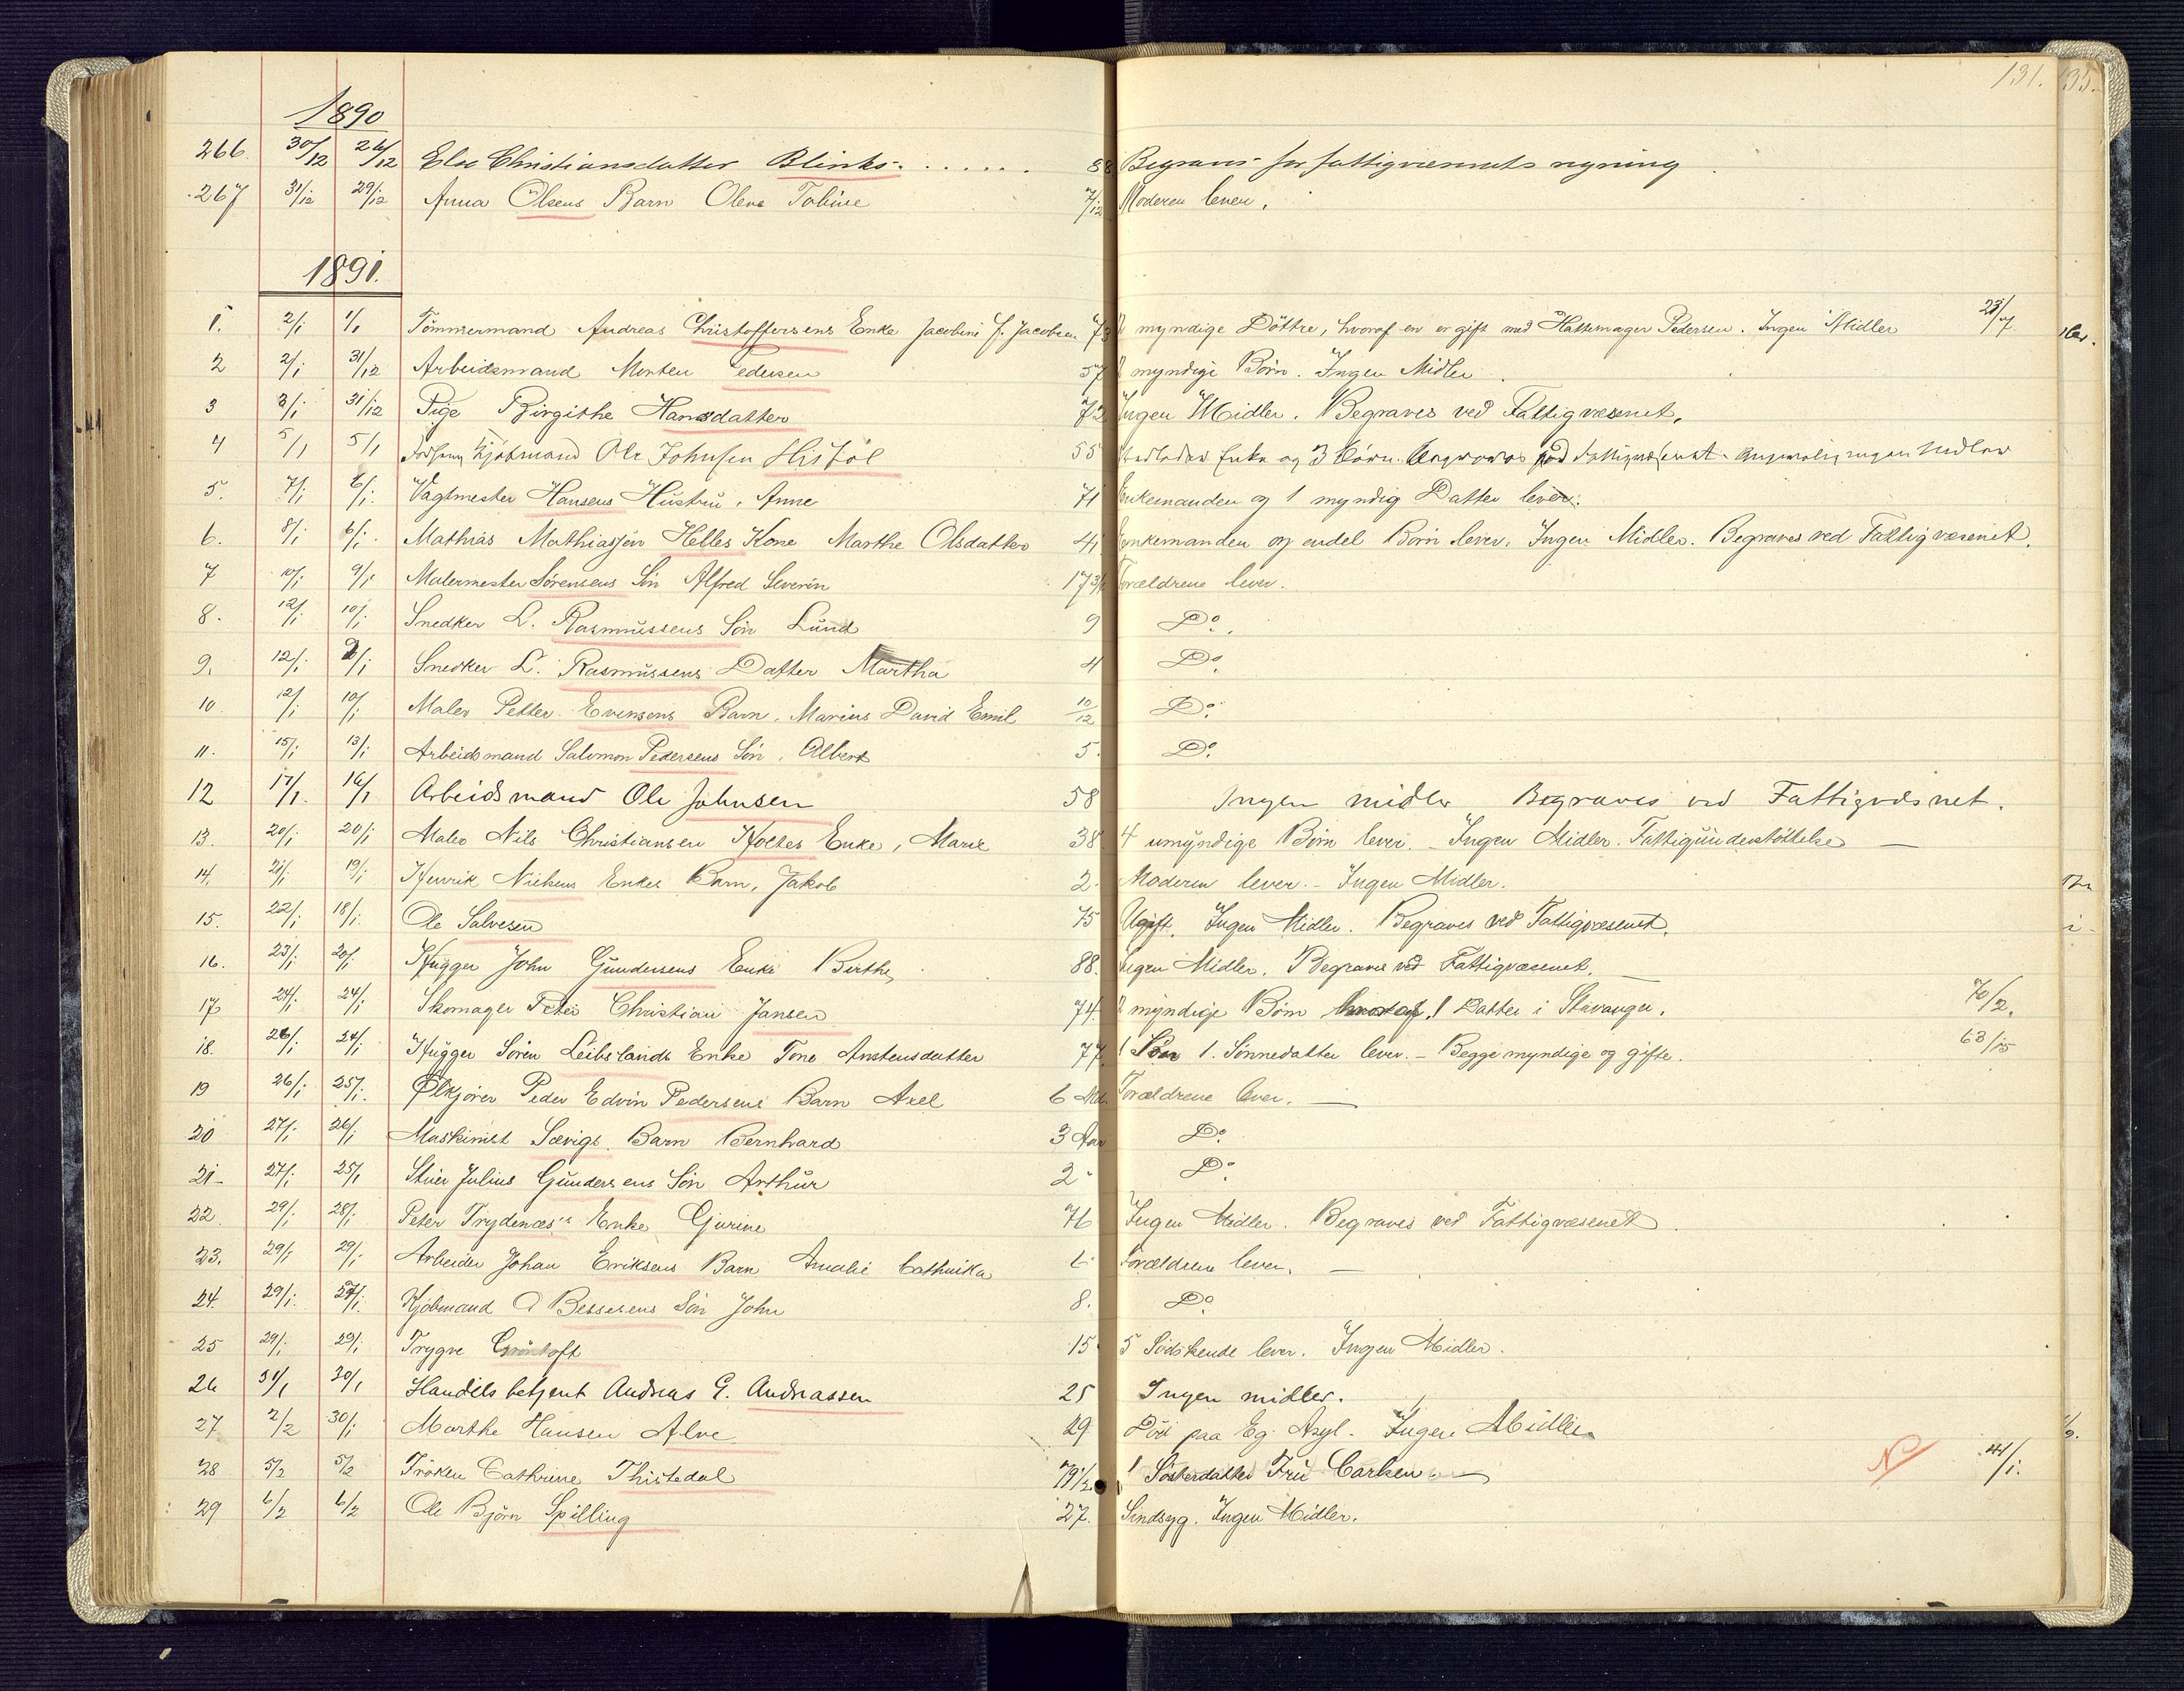 131. 135.
1890
266. 30/12 26/12 Else Christiansdatter Blinks. . . . . . . 88 Begraves for fattigvæsenets regning.
267 31/12 29/12 Anna Olsens Barn Olene Tobine 7/12 Moderen lever.
1891.
1. 2/1 1/1 Tömmermand Andreas Christoffersens Enke Jacobine f. Jacobsen 73 2 myndige Döttre, hvoraf en er gift med Hattemager Pedersen. Ingen Midler 23/7
2 2/1 31/12 Arbeidsmand Morten Pedersen 57 2 myndige Börn. Ingen Midler.
3 3/1 31/12 Pige Birgithe Hansdatter 72 Ingen Midler. Begraves ved Fattigvæsenet.
4 5/1 5/1 Kjöbmand Ole Johnsen Hisföl 55 Enke og 3 börn. ingen
5. 7/1 6/1 Vagtmester Hansens Hustru, Anne 71 Enkemanden og 1 myndig Datter lever.
6. 8/1 6/1 Mathias Mathiassen Helles Kone Marthe Olsdatter 41 Enkemanden og endel Börn lever. Ingen Midler. Begraves ved Fattigvæsenet.
7 10/1 9/1 Malermester Sörensens Sön Alfred Severin 17 3/4 Forældrene lever.
8. 12/1 10/1 Snedker L. Rasmussens Sön Lund 9 Do.
9. 12/1 9/1 Snedker L. Rasmussens Datter Martha 4 Do.
10 12/1 10/1 Maler Petter Evensens Barn, Marius David Emil 10/12 Do.
11. 15/1 13/1 Arbeidsmand Salomon Pedersens Sön, Albert 5. Do.
12 17/1. 16/1 Arbeidsmand Ole Johnsen 58 Ingen midler Begraves ved Fattigvæsnet.
13. 20/1 20/1 Maler Nils Christiansen Holtes Enke, Marie 38 4 umyndige Börn lever. - Ingen Midler. Fattigunderstöttelse —
14. 21/1 19/1 Henrik Nielsens Enkes Barn, Jakob 2. Moderen lever. - Ingen Midler.
15. 22/1 18/1 Ole Salvesen 75 Ugift. Ingen Midler. Begraves ved Fattigvæsenet.
16. 23/1 20/1 Hugger John Gundersens Enke Berthe 88. Ingen Midler. Begraves ved Fattigvæsenet.
17 24/1 24/1 Skomager Peter Christian Jansen 74. 2 myndige Börn hvoraf 1 Datter i Stavanger. 70/2.
18. 26/1 24/1 Hugger Sören Leibslands Enke Tone Anstensdatter 77. 1 Sön 1. Sönnedatter lever. - Begge myndige og gifte. 63/15
19 26/1 25/1. Ølkjører Peder Edvin Pedersens Barn Axel 6 Md. Forældrene lever. —
20 27/1 26/1 Maskinist Sævigs Barn Bernhard 3 Aar Do.
21- 27/1 25/1 Stuer Julius Gundersens Sön Arthur 2 " Do.
22. 29/1 28/1 Peter Trydenæs's Enke Gjurine 76 Ingen Midler. Begraves ved Fattigvæsenet.
23. 29/1 29/1 Arbeider Johan Eriksens Barn Amalie Cathinka Forældrene lever. —
24. 29/1. 27/1. Kjöbmand O Bessesens Sön John 8. Do
25 29/1 29/1 Trygve Gröntoft 15 5 Södskende lever. Ingen Midler.
26 31/1 30/1 Handelsbetjent Andreas G. Andreassen 25 Ingen midler.
27 2/2 30/1 Marthe Hansen Alve 29 Död paa Eg Asyl. Ingen Midler.
28 5/2 5/2 Fröken Cathrine Thistedal 79 1/2. 1 Sösterdatter Fru Carlsen — N 44/1.
29 6/2 6/2 Ole Björn Spilling 27. Sindsyg. Ingen Midler.